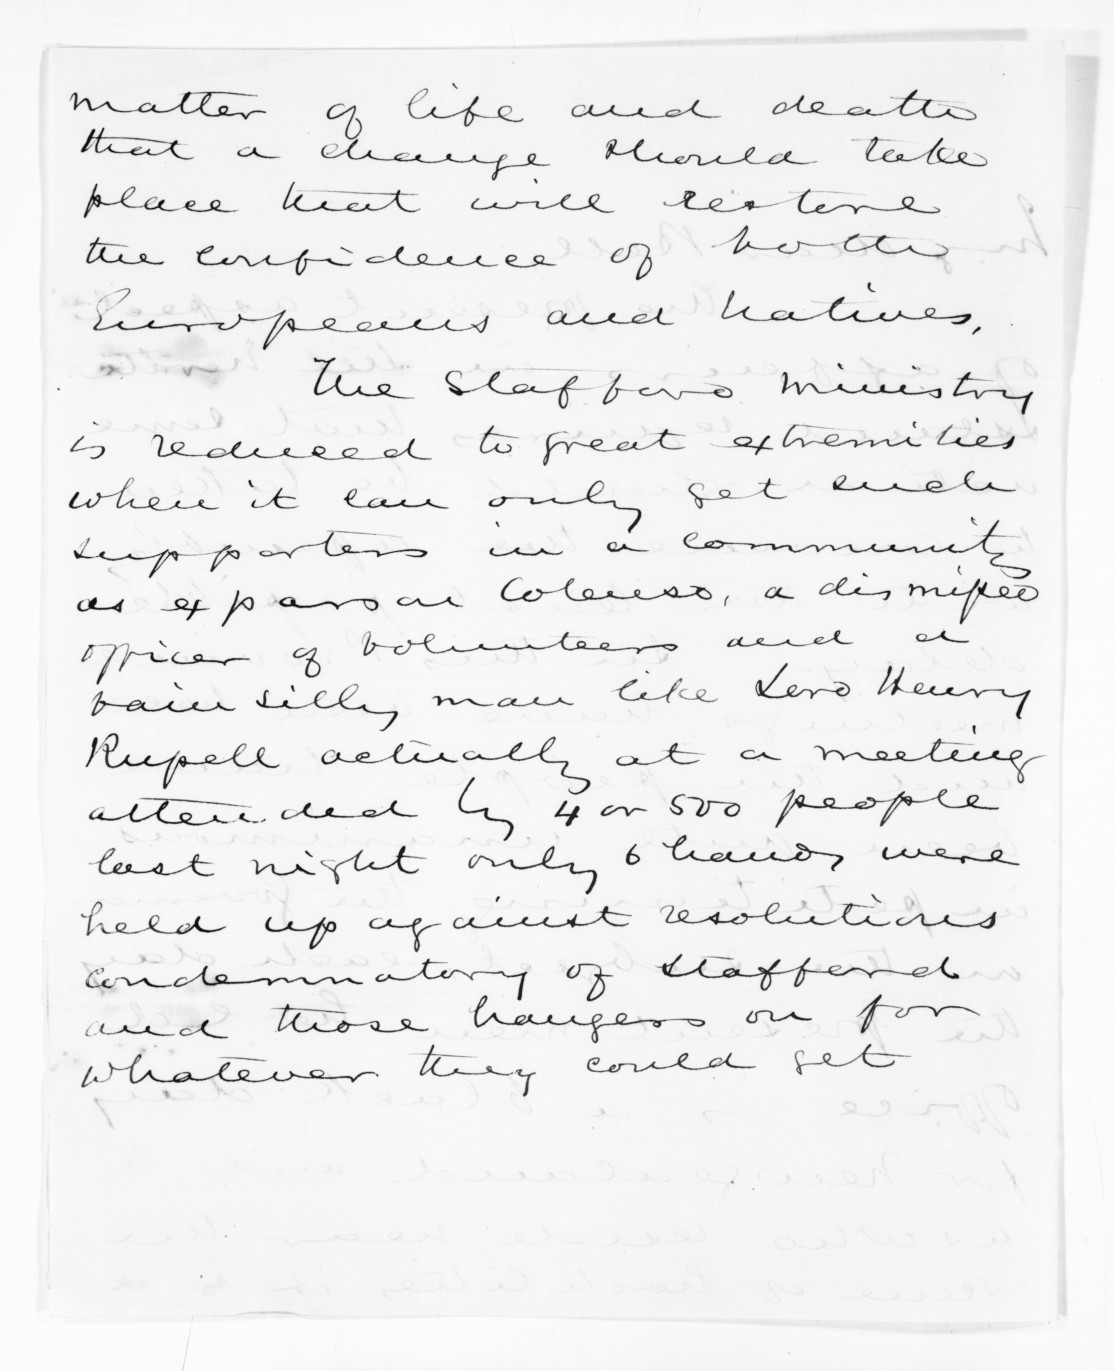 matter of life and death
that a change should take
place that will restore
the confidence of both
Europeans and Natives,
The Stafford Ministry
is reduced to great extremities
when it can only get such
supporters in a community
as ex parson Colenso, a dismissed
officer of volunteers and a
vain silly man like Lord Henry
Russell actually at a meeting
attended by 4 or 500 people
last night only 6 hands were
held up against resolutions
condemnatory of Stafford
and those hangers on for
whatever they could get